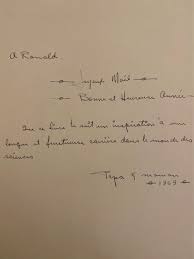 A Ronald.
Joyeux Noël
Bonne et Heureuse Année
Que ce livre te soit un inspiration à une
longue et fructueuse carrière dans le monde des
sciences
Papa & maman
1969